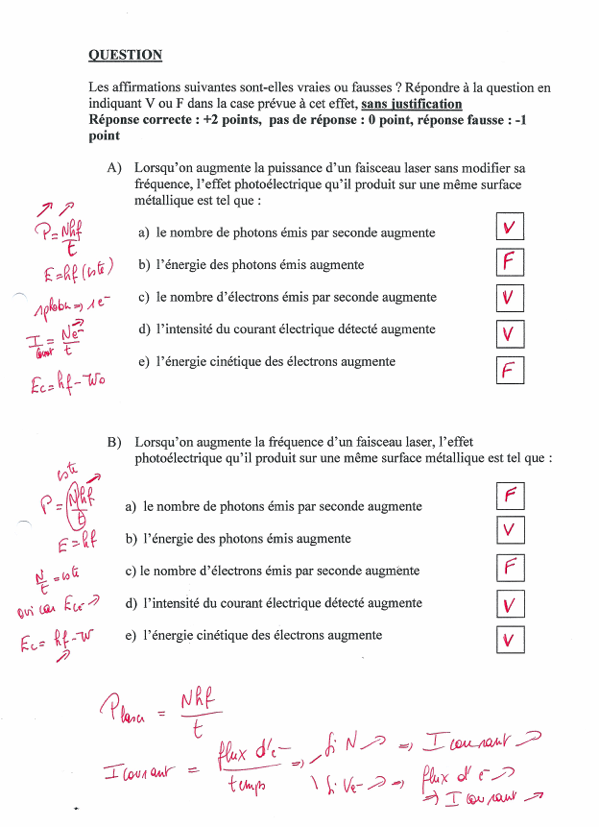 QUESTION
Les affirmations suivantes sont-elles vraies ou fausses ? Répondre à la question en
indiquant V ou F dans la case prévue à cet effet, sans justification
Réponse correcte : +2 points, pas de réponse : 0 point, réponse fausse : -1
point
A) Lorsqu'on augmente la puissance d'un faisceau laser sans modifier sa
fréquence, l'effet photoélectrique qu'il produit sur une même surface
métallique est tel que :
P = Nhf/t
a) le nombre de photons émis par seconde augmente V
E = hf (cste)
b) l'énergie des photons émis augmente F
1 photon => 1 e-
c) le nombre d'électrons émis par seconde augmente V
I = Ne-/t
d) l'intensité du courant électrique détecté augmente V
e) l'énergie cinétique des électrons augmente F
Ec = hf - W0
B) Lorsqu'on augmente la fréquence d'un faisceau laser, l'effet
photoélectrique qu'il produit sur une même surface métallique est tel que :
cste
P = Nhf/t
a) le nombre de photons émis par seconde augmente F
E = hf
b) l'énergie des photons émis augmente V
N/t = cste
c) le nombre d'électrons émis par seconde augmente F
oui car Ece- ↗
d) l'intensité du courant électrique détecté augmente V
Ec = hf - W
e) l'énergie cinétique des électrons augmente V
P laser = Nhf/t
I courant = flux d'e-/temps => Si N ↗ => I courant ↗
Si Ve- ↗ => flux d'e- ↗
=> I courant ↗